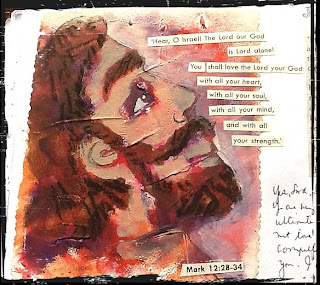 'Hear, O Israel! The Lord our God
is Lord alone!
You shall love the Lord your God
with all your heart,
with all your soul,
with all your mind,
and with all
your strength.'
Mark 12:28-34
Yes, Lord,
ultimate
not
you